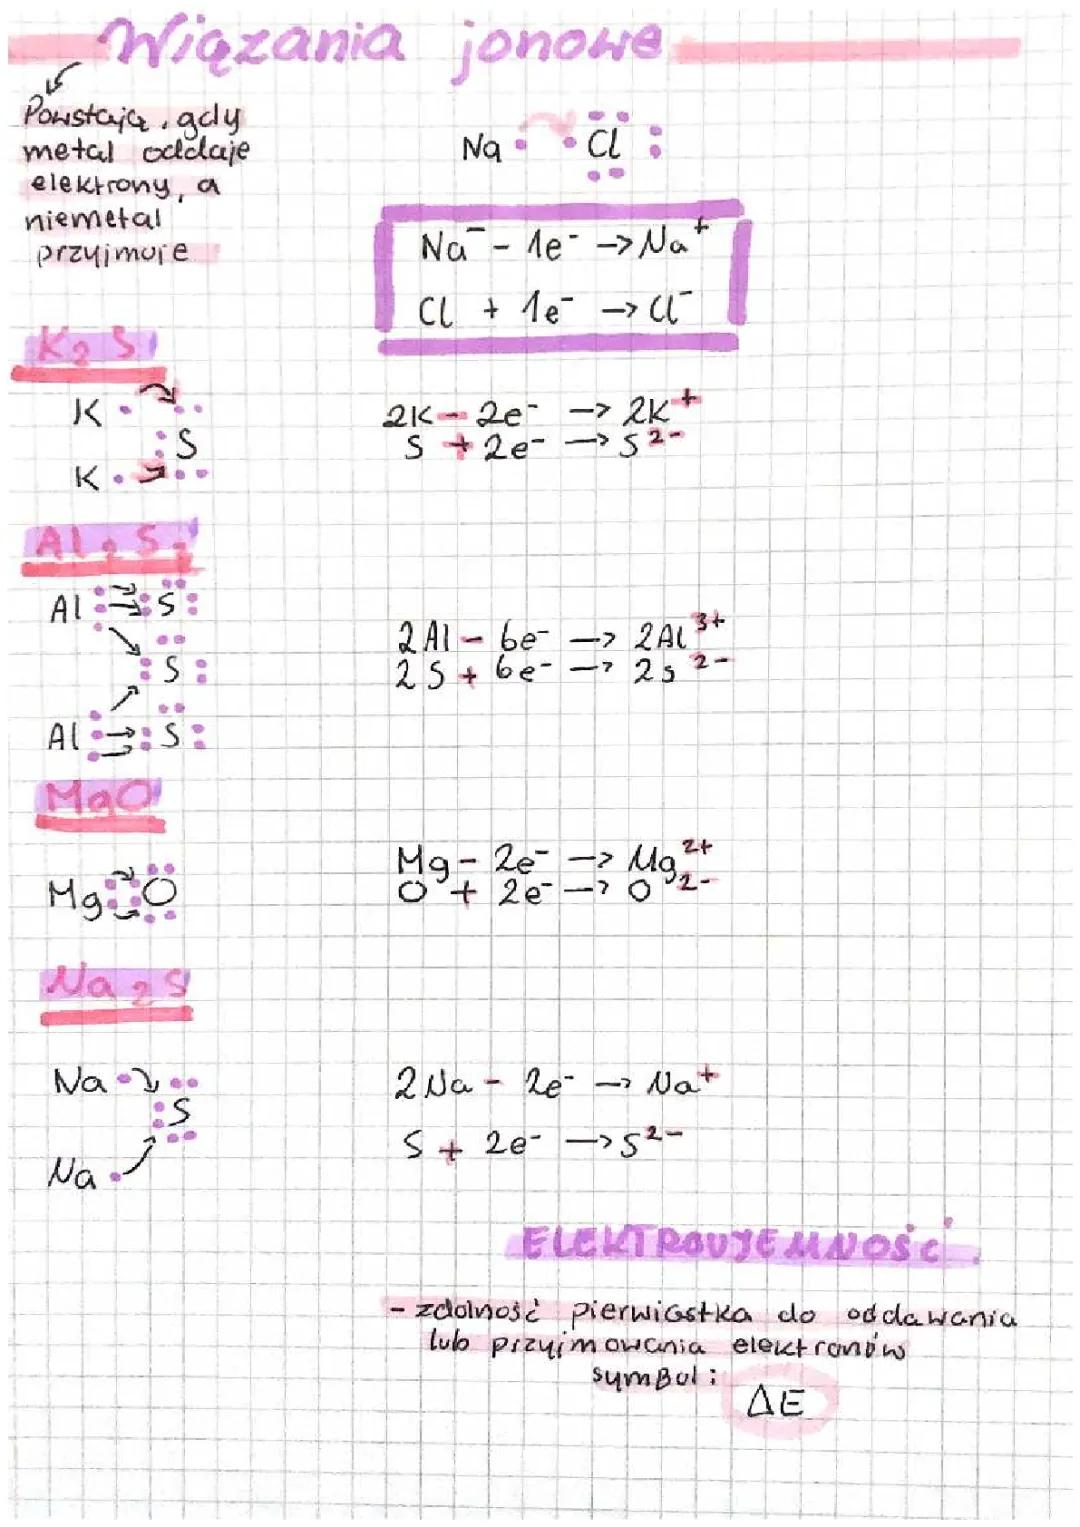 Wiązania jonowe
Powstają, gdy
metal oddaje
elektrony, a
niemetal
przyjmuje
Na Cl
Na⁻ - 1e⁻ -> Na⁺
Cl + 1e⁻ -> Cl⁻
K₂S
K
S
K
2K - 2e⁻ -> 2K⁺
S + 2e⁻ -> S²⁻
Al₂S₃
Al S
S
Al S
2Al - 6e⁻ -> 2Al³⁺
2S + 6e⁻ -> 2S²⁻
MgO
Mg O
Mg - 2e⁻ -> Mg²⁺
O + 2e⁻ -> O²⁻
Na₂S
Na
S
Na
2Na - 2e⁻ -> Na⁺
S + 2e⁻ -> S²⁻
ELEKTROUJEMNOŚĆ
- zdolność pierwiastka do oddawania
lub przyjmowania elektronów
symBol:
ΔE